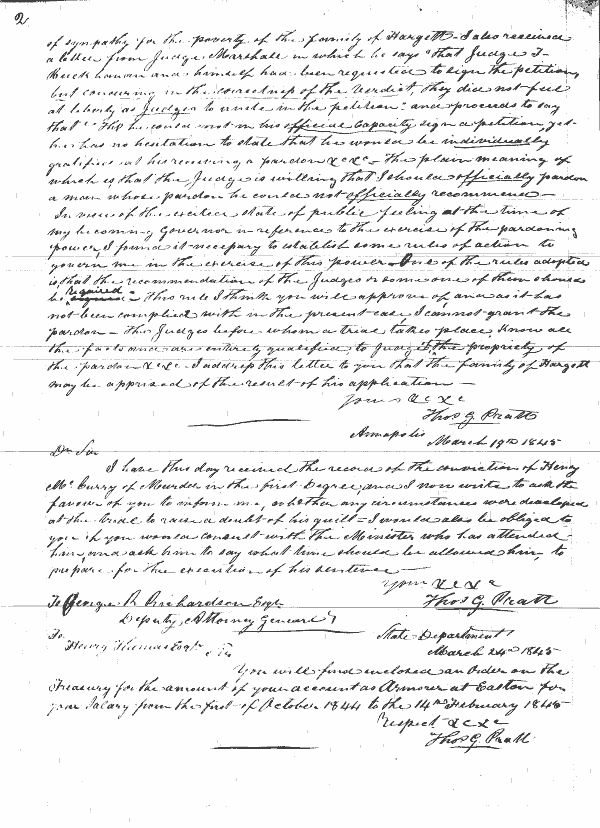 2
of sympathy for the poverty of the family of Hargett - I also received
a letter from Judge Marshall in which he says "that Judge T.
Buckhanan and himself had been requested to sign the petition,
but concurring in the correctness of the verdict, they did not feel
at liberty as Judges to unite in the petition: and proceeds to say
that "Tho' he could not in his official capacity sign a petition, yet
he has no hesitation to state that he would be individually
gratified at his receiving a pardon &c &c - The plain meaning of
which is that the Judge is willing that I should officially pardon
a man whose pardon he could not officially recommend -
In view of the excited state of public feeling at the time of
my becoming Governor in reference to the exercise of the pardoning
power, I found it necessary to establish some rules of action to
govern me in the exercise of this power - One of the rules adopted
is that the recommendation of the Judges or some one of them should
be required - This rule I think you will approve of and as it has
not been complied with in the present case I cannot grant the
pardon - The Judges before whom a trial takes place know all
the facts and are entirely qualified to judge the propriety of
the pardon &c &c - I address this letter to you that the family of Hargett
may be apprised of the result of his application -
Yours &c &c
Thos G. Pratt
Annapolis March 19th 1845
Dr Sir
I have this day received the record of the conviction of Henry
McCurry of Murder in the first Degree, and I now write to ask the
favour of you to inform me, whether any circumstances were developed
at the trial to raise a doubt of his guilt - I would also be obliged to
you if you would consult with the Minister who has attended
him, and ask him to say what time should be allowed him, to
prepare for the execution of his sentence -
Yours &c &c
Thos G. Pratt
To George R. Richardson Esqr.
Deputy Attorney General
To State Department
Henry Thomas Esqr. March 24th 1845
Sir
You will find enclosed an Order on the
Treasury for the amount of your account as Armorer at Easton for
your Salary from the first of October 1844 to the 14th February 1845
Respect &c &c
Thos G. Pratt